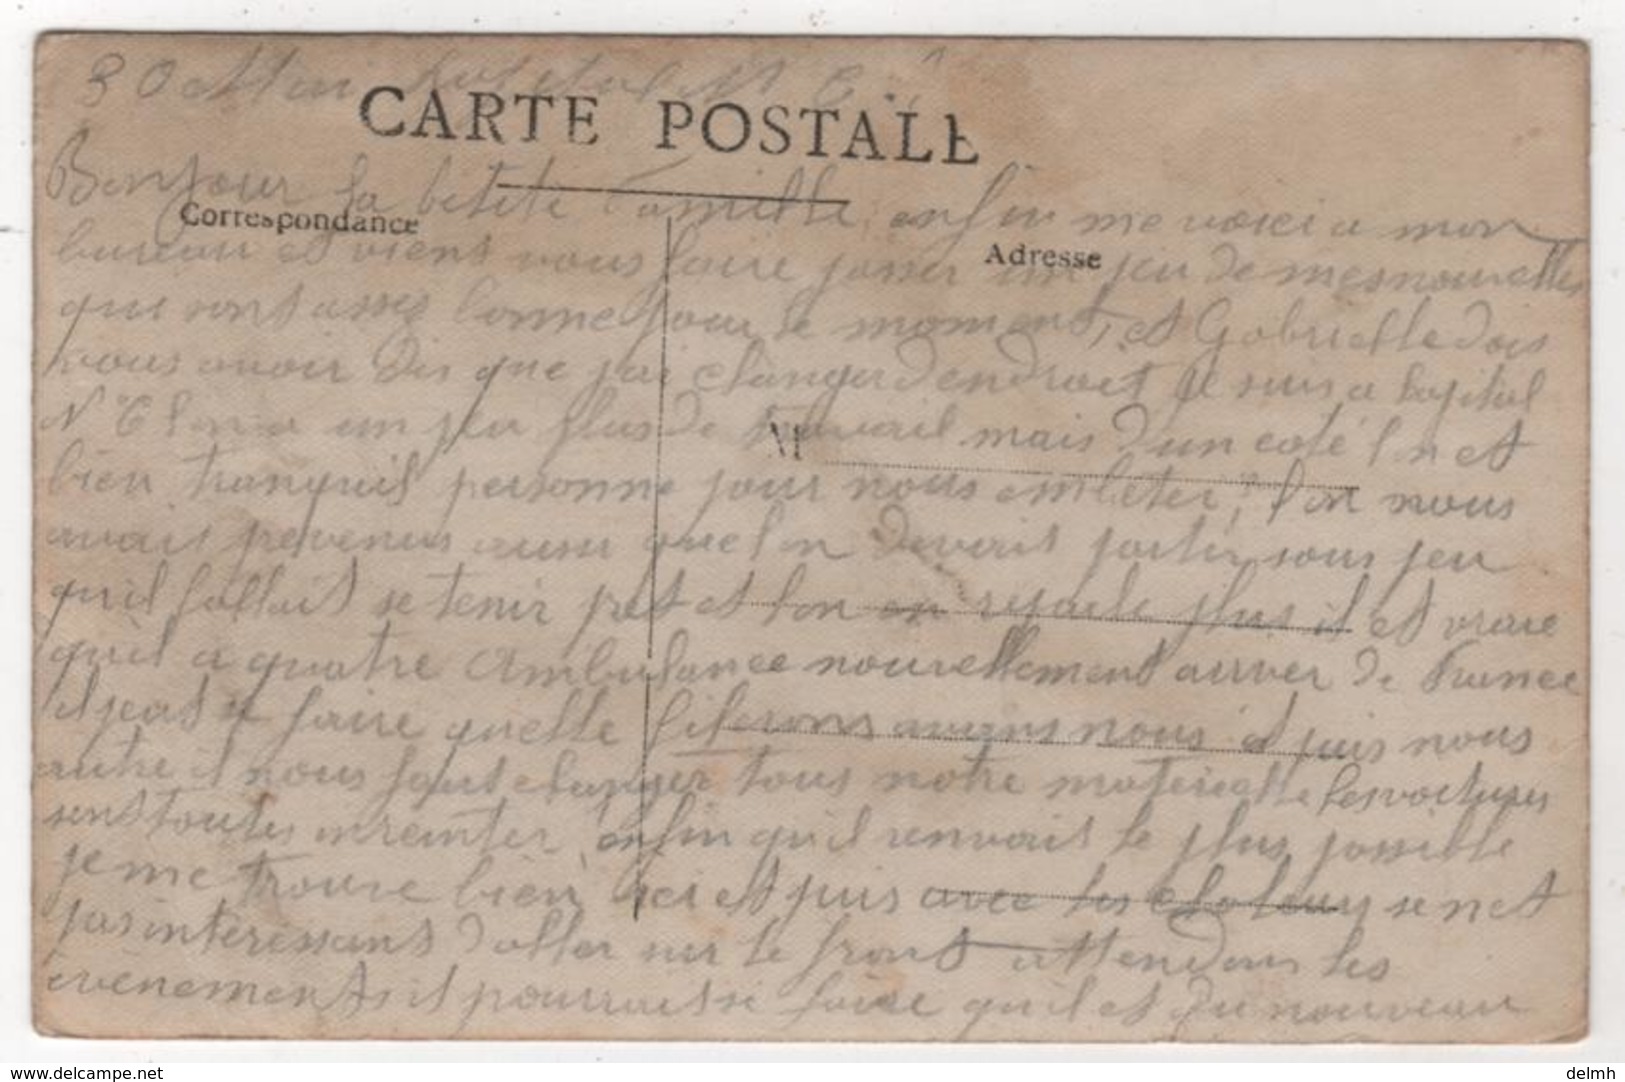 30 Mai hopital N° 6
CARTE POSTALE
Bonjour la petite famille enfin me voici a mon
Correspondance
Adresse
bureau et viens vous faire passer un peu de mes nouvelles
que sont asses bonne pour le moment, et Gabrielle dois
vous avoir dis que jai changer dendroit je suis a hopital
N° 6 lon a un peu plus de travail mais dun coté lon et
M
bien tranquil personne pour nous embeter, lon nous
avais prevenus aussi que lon devait partir sous peu
quil fallait se tenir pret et lon en reparle plus il et vraie
quil a quatre ambulance nouvellement arriver de France
il peat y faire quelle filerons avans nous et puis nous
autre il nous faut changer tous notre materielle les voitures
sens toutes ereinter enfin quil renvait le plus possible
je me trouve bien ici et puis avec les chaleur se net
pas interessant daller sur le front attendons les
evenements il pourrait si faire quil et du nouveau
www.delcampe.net
delmh